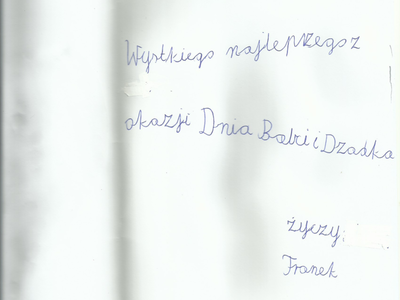 Wystkiego najleprzego z
okazji Dnia Babci i Dzadka
życzy:
Franek